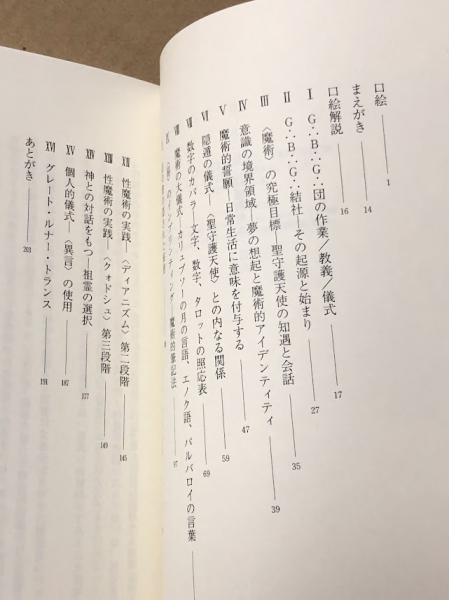 口絵――1
まえがき――14
口絵解説――16
Ⅰ G∴B∴G∴団の作業/教義/儀式――17
Ⅱ G∴B∴G∴結社―その起源と始まり――27
Ⅲ 〈魔術〉の究極目標 聖守護天使の知遇と会話――35
Ⅳ 意識の境界領域―夢の想起と魔術的アイデンティティ――39
Ⅴ 魔術的誓願―日常生活に意味を付与する――47
Ⅵ 隠遁の儀式―〈聖守護天使〉との内なる関係――59
Ⅶ 数字のカバラ―文字、数字、タロットの照応表――69
Ⅷ 魔術の大儀式―カリュプソーの月の言語、エノク語、バルバロイの言葉
魔術的筆記法――97
XII 性魔術の実践、〈ディアニズム〉第二段階――145
XIII 性魔術の実践、〈クォドシュ〉第三段階――149
XIV 神との対話をもつ―祖霊の選択――177
XV 個人的儀式―〈異言〉の使用――187
XVI グレート・ルナー・トランス――191
あとがき――203